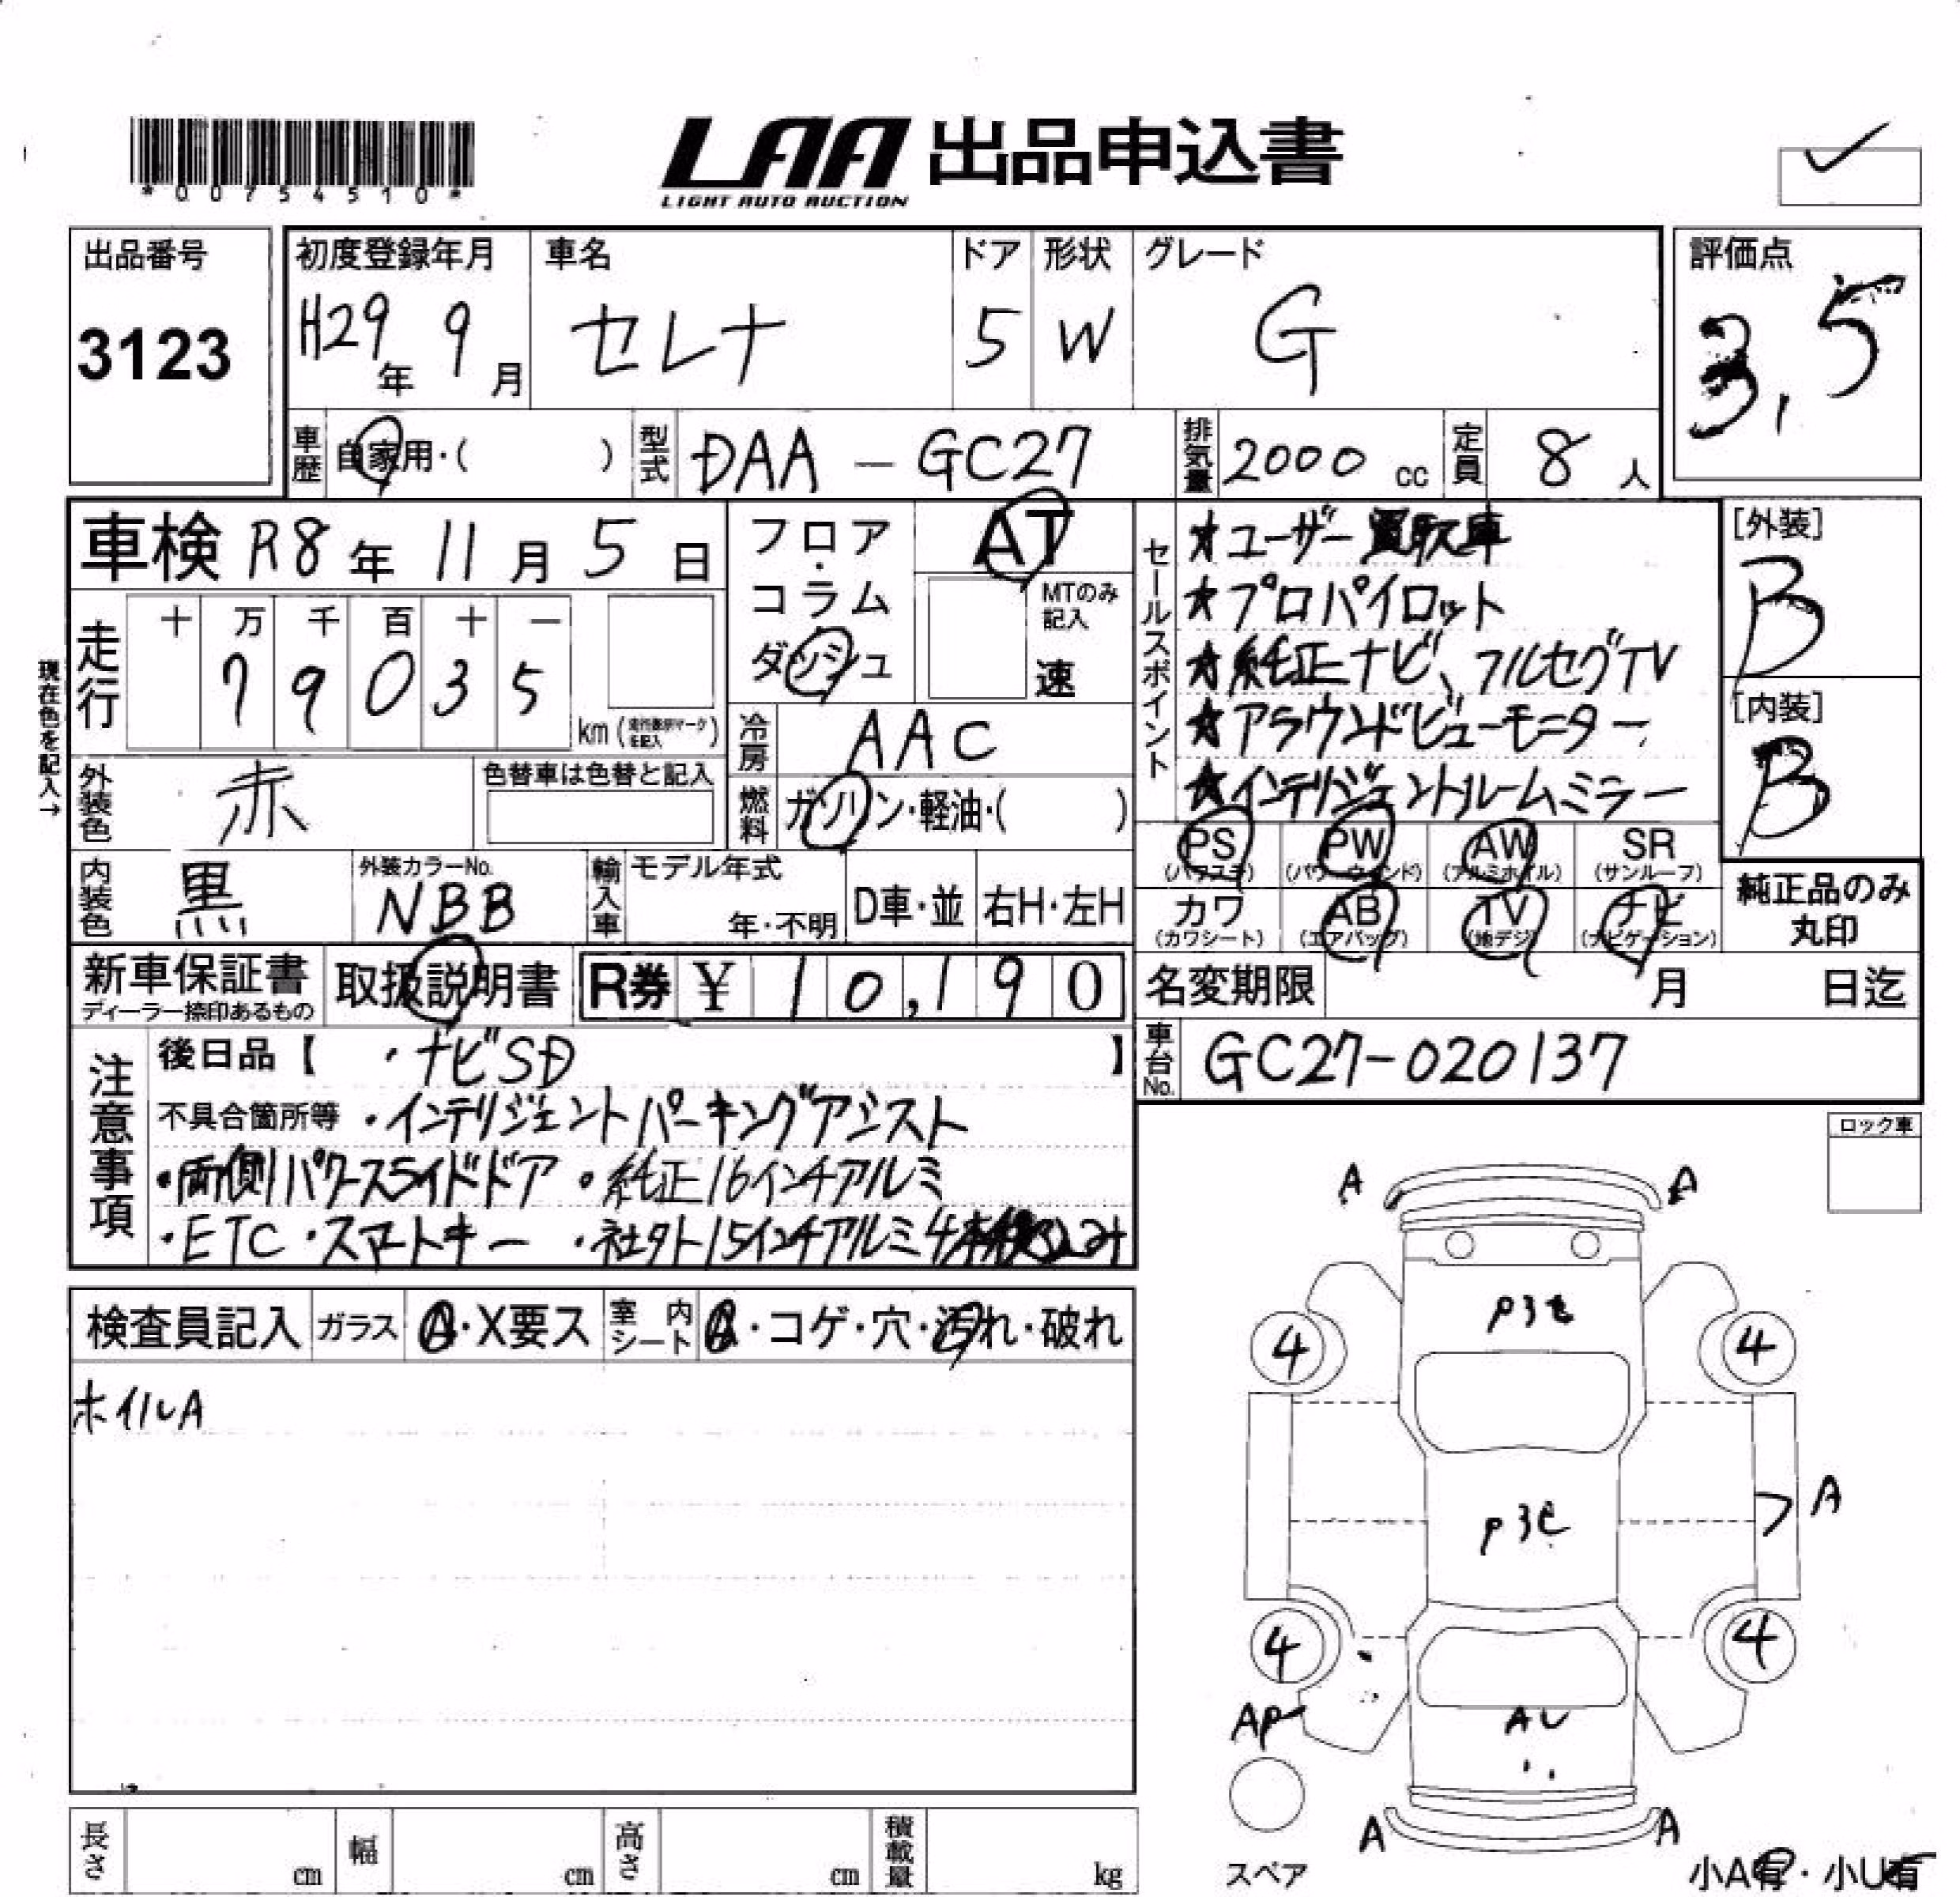 *00754510*
LAA 出品申込書
LIGHT AUTO AUCTION
出品番号
3123
初度登録年月
H29年 9月
車名
セレナ
ドア
5
形状
W
グレード
G
評価点
3.5
車歴
自家用・( )
型式
DAA - GC27
排気量
2000 cc
定員
8 人
車検 R8年 11月 5日
フロア・コラム ダッシュ
AT
MTのみ記入
速
走行
十 万 千 百 十 一
79035
km
現在色を記入→
冷房
AAC
燃料
ガソリン・軽油・( )
外装色
赤
色替車は色替と記入
内装色
黒
外装カラーNo.
NBB
輸入車
モデル年式
年・不明
D車・並
右H・左H
セールスポイント
★ユーザー買取車
★プロパイロット
★純正ナビ、フルセグTV
★アラウンドビューモニター
★インテリジェントルームミラー
[外装]
B
[内装]
B
PS (パワステ)
PW (パワーウィンド)
AW (アルミホイル)
SR (サンルーフ)
カワ (カワシート)
AB (エアバッグ)
TV (地デジ)
ナビ (ナビゲーション)
純正品のみ丸印
新車保証書
ディーラー捺印あるもの
取扱説明書
R券 ¥ 10,190
名変期限 月 日迄
車台No.
GC27-020137
注意事項
後日品【 ・ナビSD 】
不具合箇所等 ・インテリジェントパーキングアシスト
・両側パワースライドドア ・純正16インチアルミ
・ETC ・スマートキー ・社外15インチアルミ4本積込み
ロック車
検査員記入
ガラス
A・X要ス
室内シート
・コゲ・穴・汚れ・破れ
ホイルA
A A
P3E
4 4
P3E
A
4 4
AP
AU
A A
スペア
小A有・小U有
長さ cm
幅 cm
高さ cm
積載量 kg